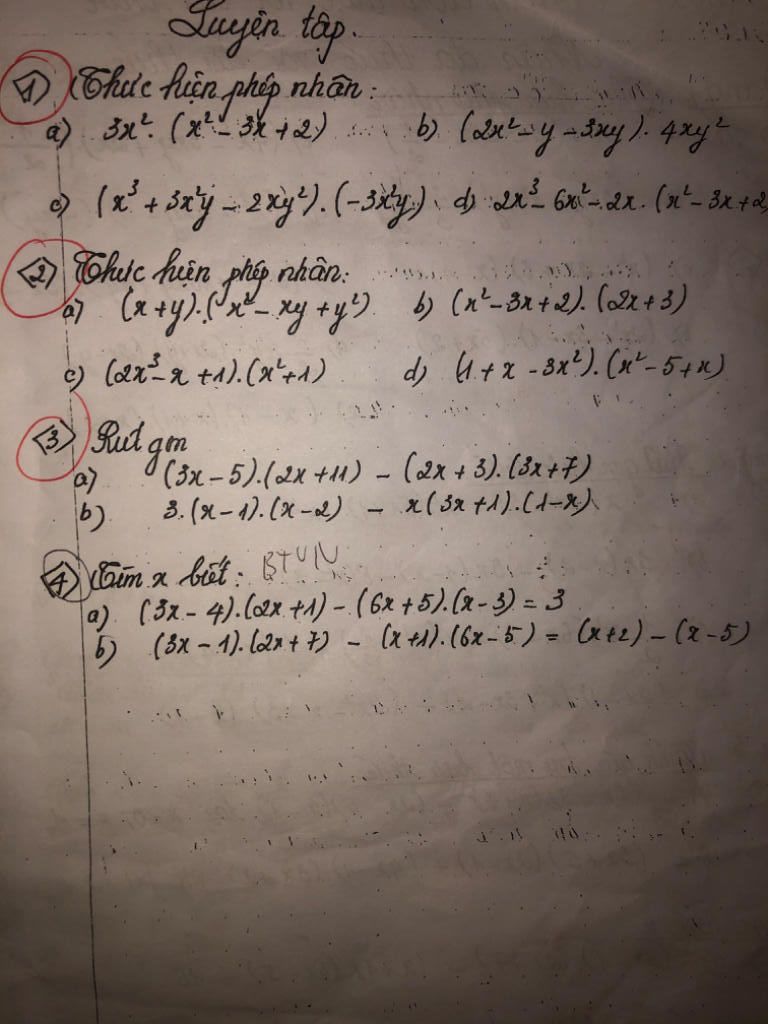 Luyện tập.
1 Thực hiện phép nhân:
a) 3x². (x² - 3x + 2) b) (2x² - y - 3xy). 4xy²
c) (x³ + 3x²y - 2xy²).(-3x²y) d) 2x³ - 6x² - 2x. (x² - 3x + 2
2 Thực hiện phép nhân:
a) (x + y).(x² - xy + y²) b) (x² - 3x + 2). (2x + 3)
c) (2x³ - x + 1).(x² + 1) d) (1 + x - 3x²).(x² - 5 + x)
3 Rút gọn
a) (3x - 5).(2x + 11) - (2x + 3).(3x + 7)
b) 3.(x - 1).(x - 2) - x(3x + 1).(1 - x)
4 Tìm x biết: BTVN
a) (3x - 4).(2x + 1) - (6x + 5).(x - 3) = 3
b) (3x - 1).(2x + 7) - (x + 1).(6x - 5) = (x + 2) - (x - 5)